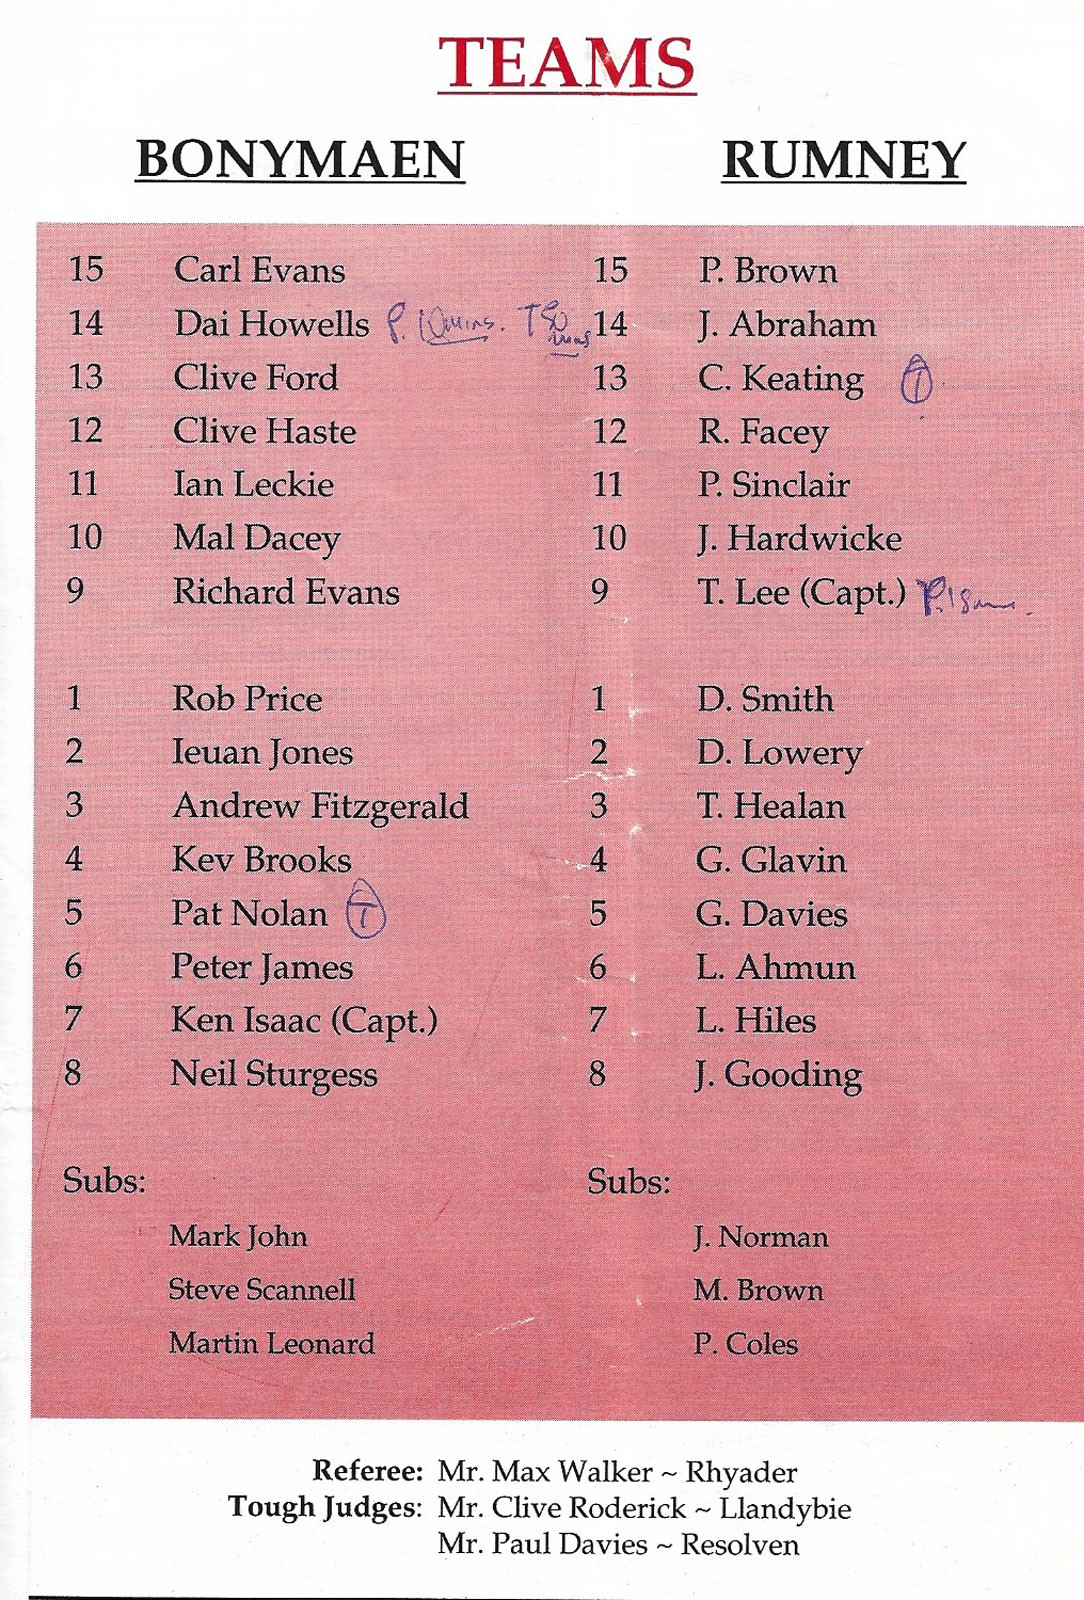 TEAMS
BONYMAEN
15 Carl Evans
14 Dai Howells P. 10mins. T 50 mins
13 Clive Ford
12 Clive Haste
11 Ian Leckie
10 Mal Dacey
9 Richard Evans
1 Rob Price
2 Ieuan Jones
3 Andrew Fitzgerald
4 Kev Brooks
5 Pat Nolan T
6 Peter James
7 Ken Isaac (Capt.)
8 Neil Sturgess
Subs:
Mark John
Steve Scannell
Martin Leonard
RUMNEY
15 P. Brown
14 J. Abraham
13 C. Keating T
12 R. Facey
11 P. Sinclair
10 J. Hardwicke
9 T. Lee (Capt.) P.
1 D. Smith
2 D. Lowery
3 T. Healan
4 G. Glavin
5 G. Davies
6 L. Ahmun
7 L. Hiles
8 J. Gooding
Subs:
J. Norman
M. Brown
P. Coles
Referee: Mr. Max Walker ~ Rhyader
Tough Judges: Mr. Clive Roderick ~ Llandybie
Mr. Paul Davies ~ Resolven